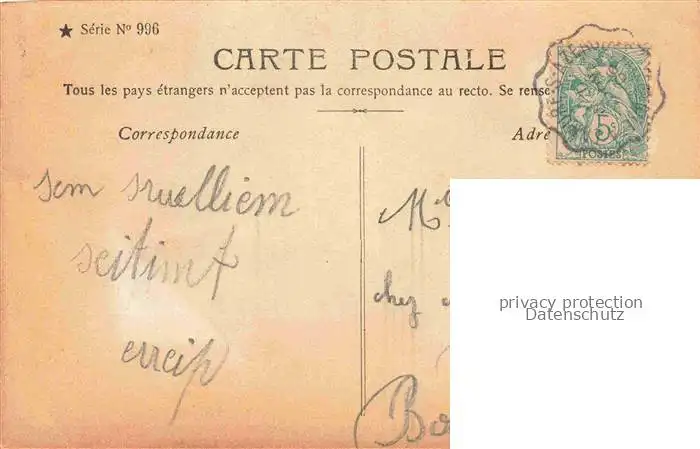 ★ Série Nº 996
CARTE POSTALE
Tous les pays étrangers n'acceptent pas la correspondance au recto. Se rense
Correspondance
Adre
sem sruelliem
seitimA
erreip
chez
5
POSTES
privacy protection
Datenschutz